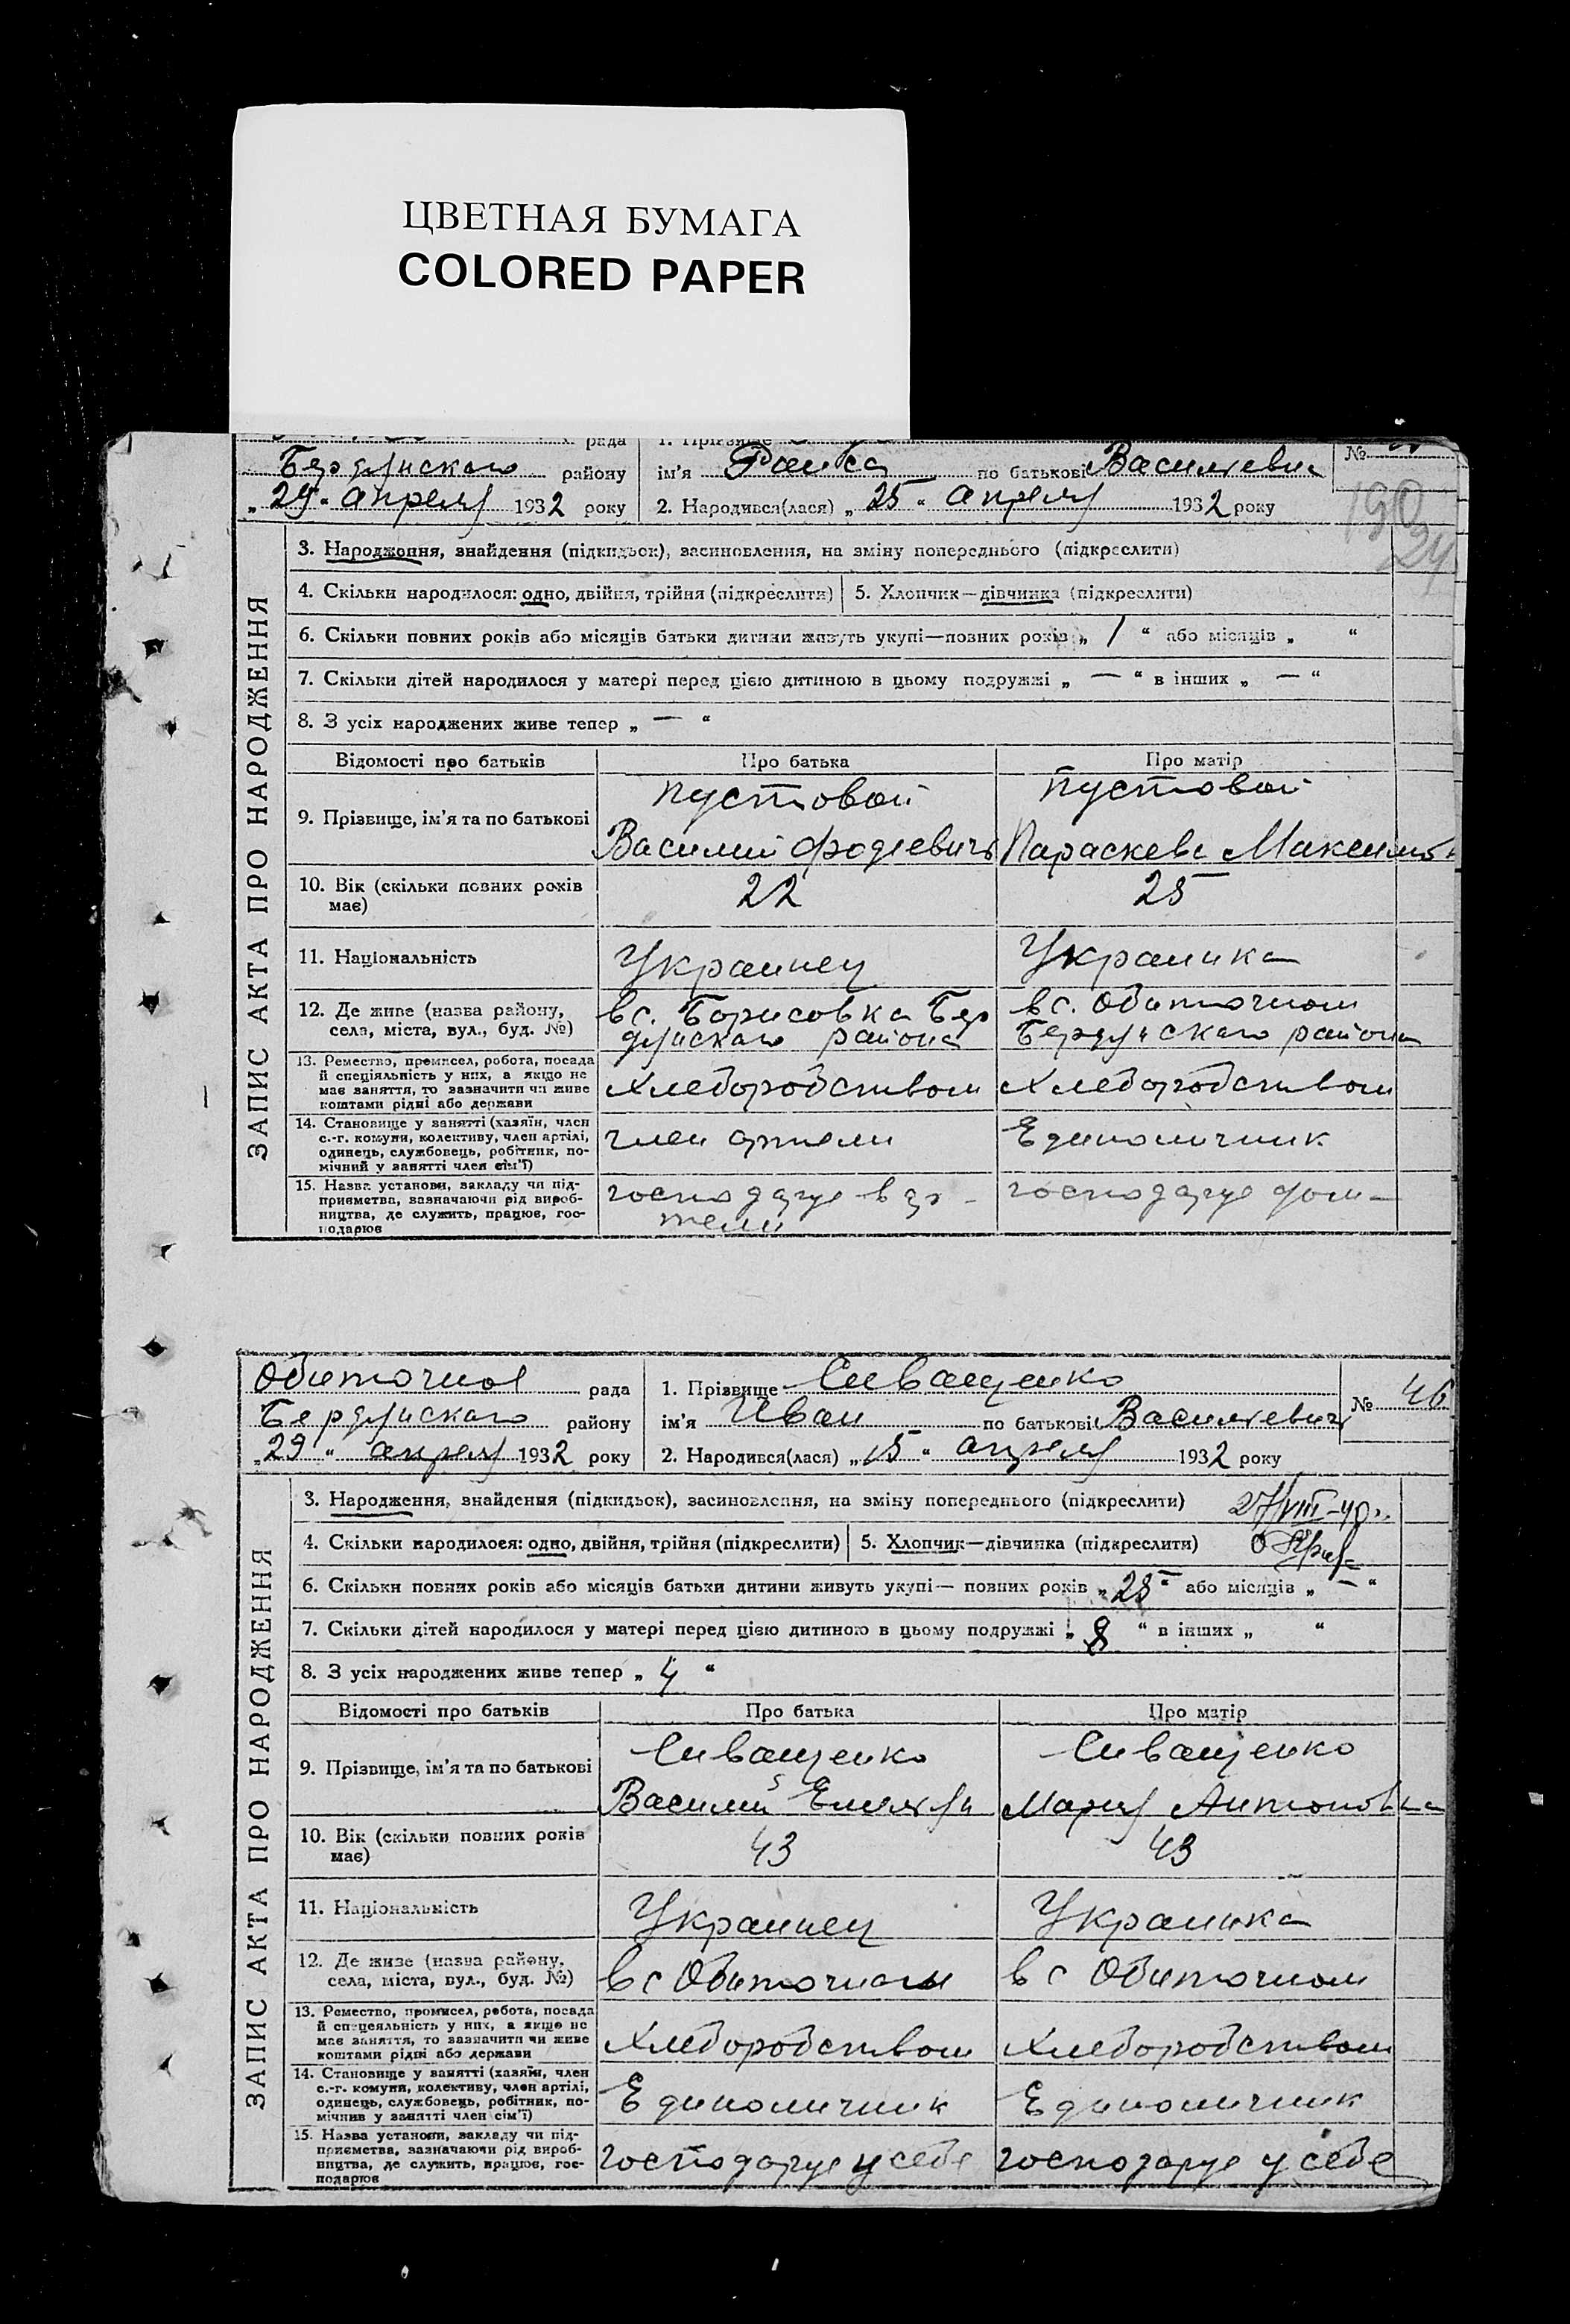 ЦВЕТНАЯ БУМАГА
COLORED PAPER
рада 1. Прізвище
Бердянскаго району ім'я Раиса по батькові Василževна №
„29“ апреля 1932 року 2. Народився(лася) „25“ апреля 1932 року
190
24
ЗАПИС АКТА ПРО НАРОДЖЕННЯ
3. Народження, знайдення (підкидьок), засиновлення, на зміну попереднього (підкреслити)
4. Скільки народилося: одно, двійня, трійня (підкреслити) 5. Хлопчик—дівчинка (підкреслити)
6. Скільки повних років або місяців батьки дитини живуть укупі—повних років „ 1 “ або місяців „ “
7. Скільки дітей народилося у матері перед цією дитиною в цьому подружжі „ — “ в інших „ — “
8. З усіх народжених живе тепер „ — “
Відомості про батьків Про батька Про матір
9. Прізвище, ім'я та по батькові Пустовой Пустовой
Василий Параскева Максимов
10. Вік (скільки повних років має) 22 25
11. Національність Украинец Украинка
12. Де живе (назва району, села, міста, вул., буд. №) в с. Борисовка Бер в с. Обиточном
дянскаго района Бердянскаго района
13. Ремество, промисел, робота, посада й спеціяльність у них, а якщо не має заняття, то зазначити чи живе коштами рідні або держави Хлебородством Хлебородством
14. Становище у занятті (хазяїн, член с.-г. комуни, колективу, член артілі, одинець, службовець, робітник, помічний у занятті член сім'ї) член артели Единоличник
15. Назва установи, закладу чи підприємства, зазначаючи рід виробництва, де служить, працює, господарює господарує в ар- господарує дома
тели
Обиточное рада 1. Прізвище Сиващенко № 46
Бердянскаго району ім'я Иван по батькові Васильевич
„29“ апреля 1932 року 2. Народився(лася) „15“ апреля 1932 року
ЗАПИС АКТА ПРО НАРОДЖЕННЯ
3. Народження, знайдення (підкидьок), засиновлення, на зміну попереднього (підкреслити) 27/VIII-40г.
4. Скільки народилося: одно, двійня, трійня (підкреслити) 5. Хлопчик—дівчинка (підкреслити)
6. Скільки повних років або місяців батьки дитини живуть укупі— повних років „25“ або місяців „ — “
7. Скільки дітей народилося у матері перед цією дитиною в цьому подружжі „ 8 “ в інших „ “
8. З усіх народжених живе тепер „ 4 “
Відомості про батьків Про батька Про матір
9. Прізвище, ім'я та по батькові Сиващенко Сиващенко
Василий Мария Антоновна
10. Вік (скільки повних років має) 43 43
11. Національність Украинец Украинка
12. Де живе (назва району, села, міста, вул., буд. №) в с Обиточном в с Обиточном
13. Ремество, промисел, робота, посада й спецеяльність у них, а якщо не має заняття, то зазначити чи живе коштами рідні або держави Хлебородством Хлебородством
14. Становище у занятті (хазяїн, член с.-г. комуни, колективу, член артілі, одинець, службовець, робітник, помічнив у занятті член сім'ї) Единоличник Единоличник
15. Назва установи, закладу чи підприємства, зазначаючи рід виробництва, де служить, працює, господарює господарує у себе господарує у себе